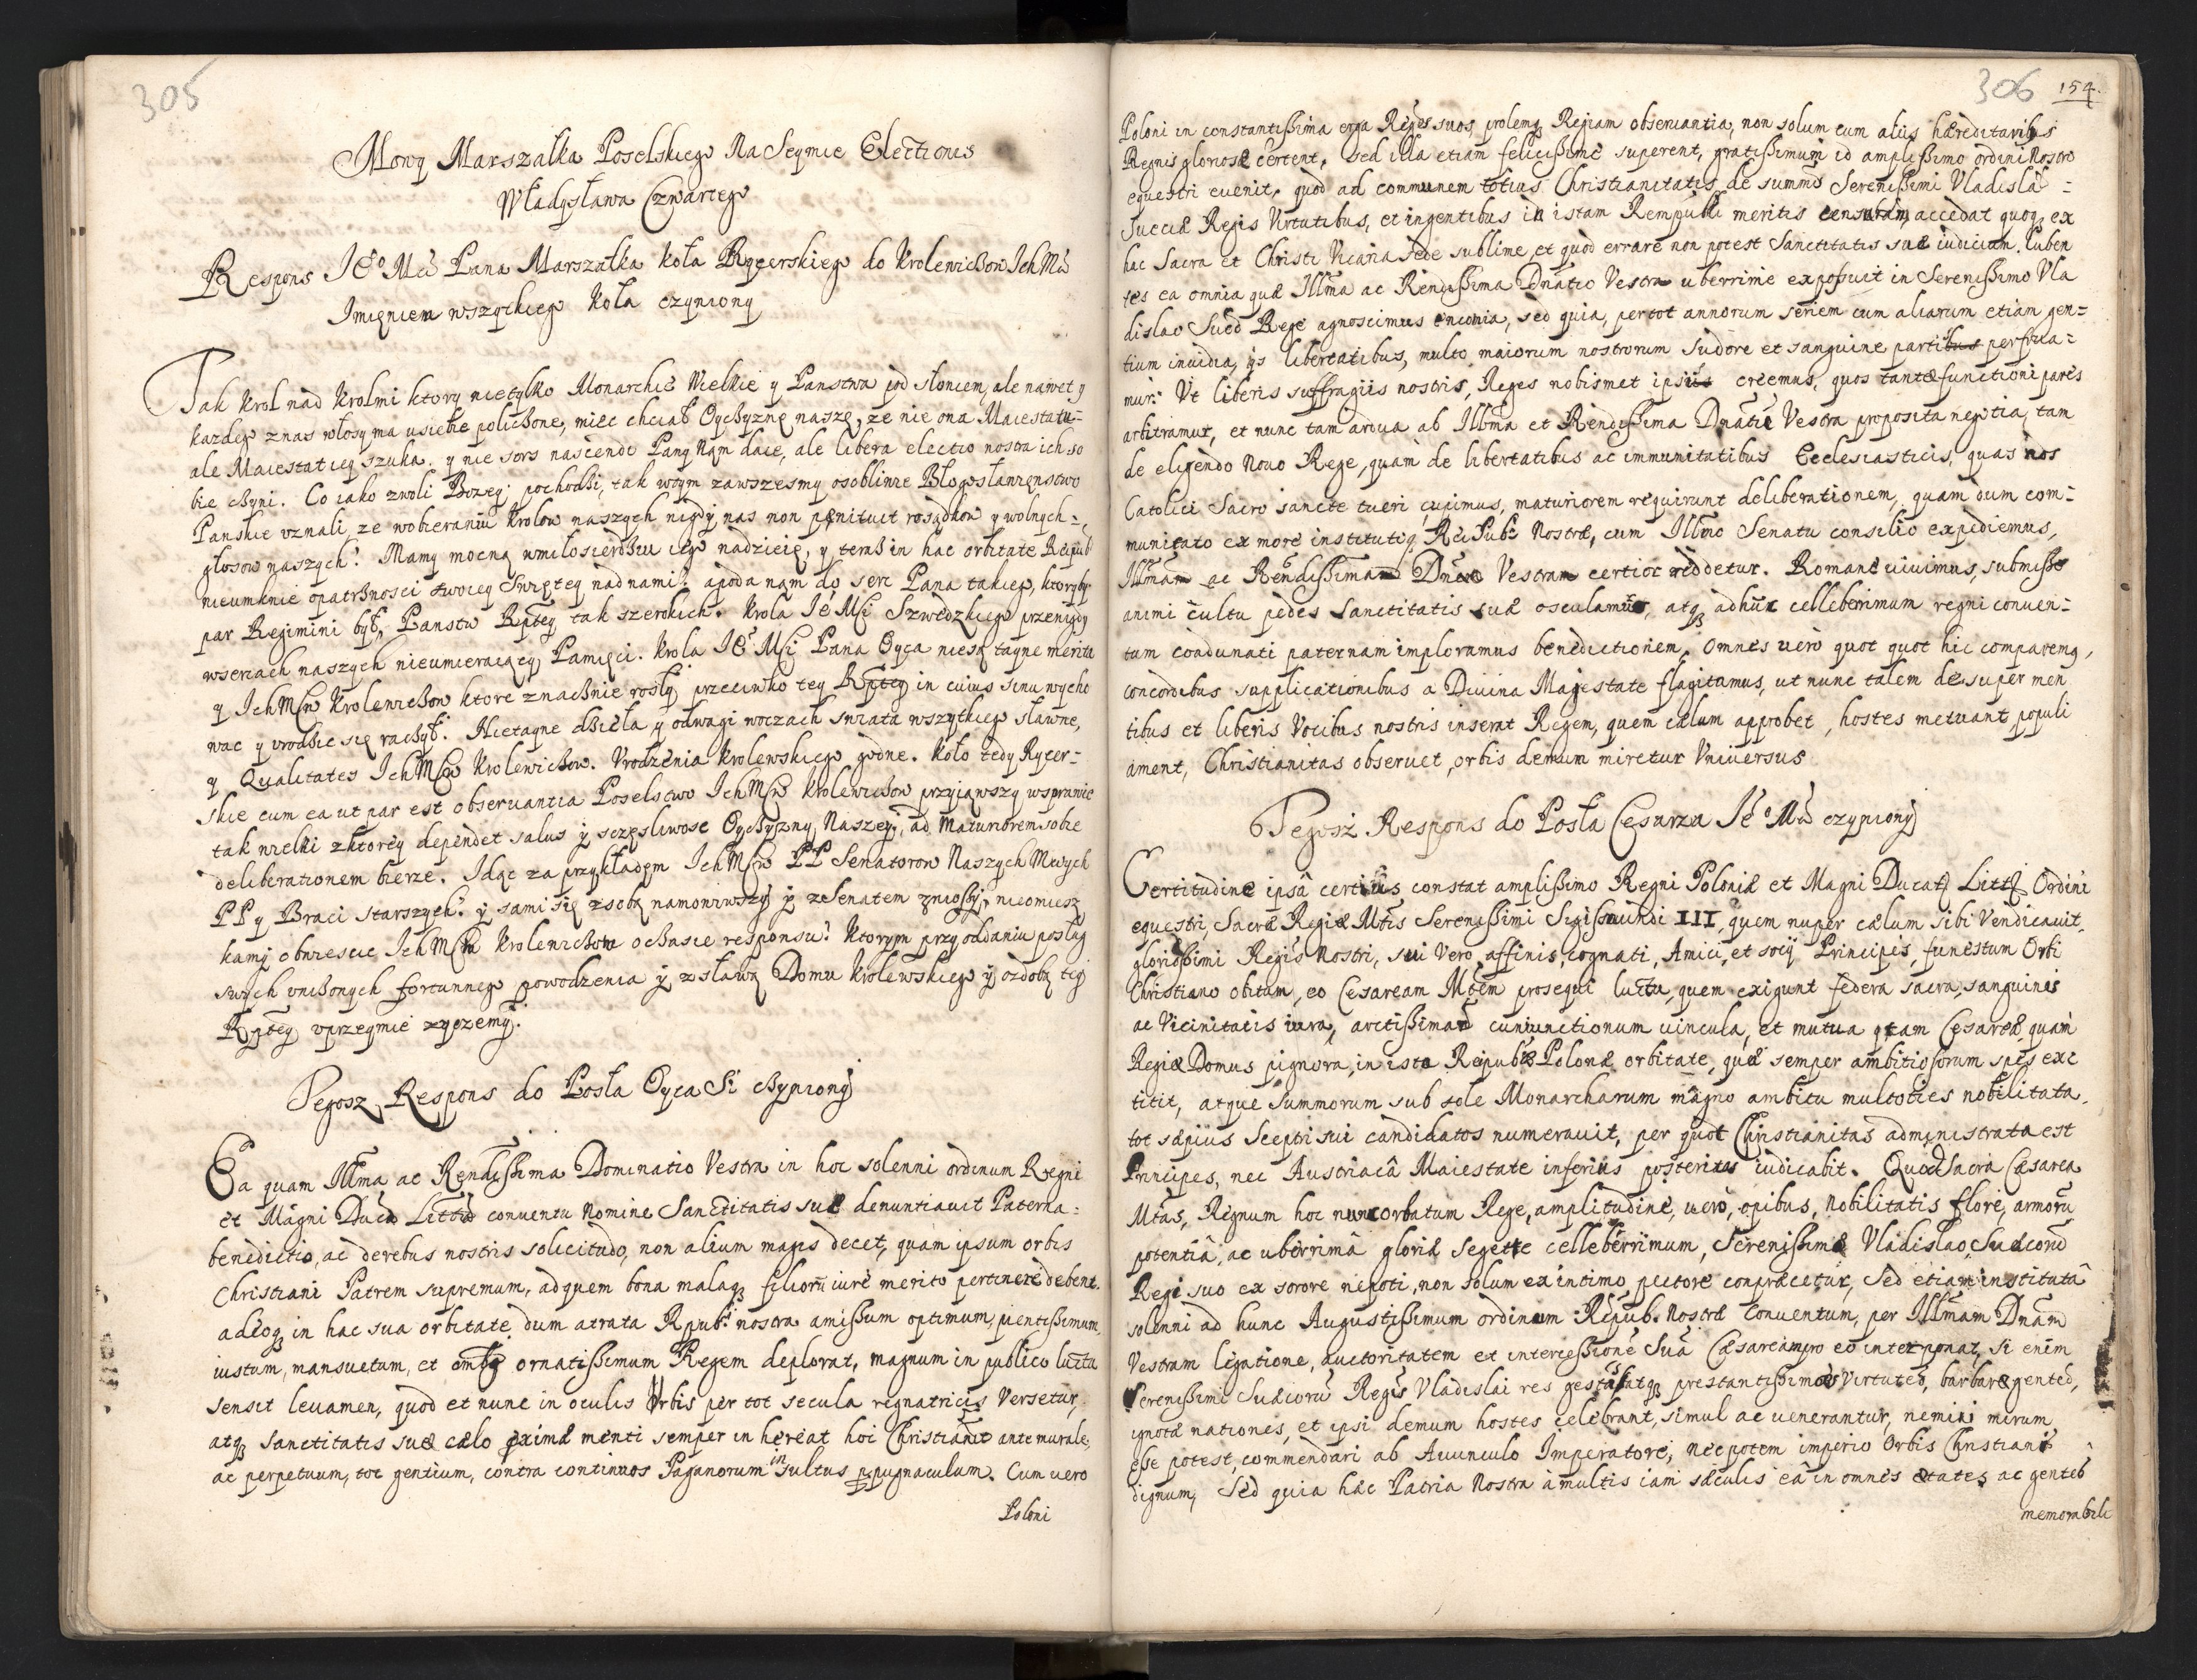 305
Mowy Marszałka Poselskiego Na Seymie Electionis
Władysława Czwartego
Respons Ieo Mci Pana Marszałka koła Rycerskiego do krolewiczow IchMci
Imieniem wszytkiego koła czyniony
Tak krol nad krolmi ktory nietylko Monarchie Wielkie y Panstwa pod słoncem, ale nawet y
kazdego znas włosy ma usiebie policzone, miec chciał Oyczyznę naszę, ze nie ona Maiestatu
ale Maiestat iey szuka, y nie sors nascendi Pany Nam daie, ale libera electio nostra ich so
bie czyni. Co iako zwoli Bozey pochodzi, tak wtym zawszesmy osobliwie Błogosławienstwo
Panskie uznali, ze wobieraniu krolow naszych nigdy nas non pænituit rosądkow y wolnych
głosow naszych. Mamy mocną wmiłosierdziu iego nadzieię, y teraz in hac orbitate Reipub
nieumknie opatrznosci swoiey Swiętey nad nami: a poda nam do serc Pana takiego, ktoryby
par Regimini był, Panstw Rptey tak szerokich. krola Ie Mci Szwedzkiego przenigdy
wsercach naszych nieumieraiącey Pamięci. krola Ieo Mci Pana Oyca niesą tayne merita
y IchMciw krolewiczow ktore znacznie rosły przeciwko tey Rptey in cuius sinu wycho
wac y urodzic się raczył. Nietayne dzieła y odwagi woczach swiata wszytkiego sławne,
y Qualitates IchMciw krolewiczow. Urodzenia krolewskiego godne. koło tedy Rycer-
skie cum ea ut par est observantia Poselstwo IchMciw krolewiczow przyiąwszy wsprawie
tak wielki zktorey dependet salus y sczęsliwosc Oyczyzny Naszey, ad Maturiorem sobie
deliberationem bierze. Idąc za przykładem IchMciw PP Senatorow Naszych Mciwych
PP y Braci starszych: y sami się zsobą namowiwszy y zSenatem zniozszy, nieomiesz
kamy obwiescic IchMciw krolewiczow oczasie responsu: ktorym przy oddaniu posług
swych uniżonych fortunnego powodzenia y zsławą Domu krolewskiego y ozdobą tey
Rptey uprzeymie zyczemy.
Tegosz Respons do Posła Oyca S. czyniony
Ea quam Illma ac Rendissima Dominatio Vestra in hoc solenni ordinum Regni
et Magni Duc Litt conventu Nomine Sanctitatis suæ denuntiavit Paterna
benedictio, ac derebus nostris solicitudo, non alium magis decet, quam ipsum orbis
Christiani Patrem supremum, ad quem bona malaq filiorū iure merito pertinere debent.
adeoq in hac sua orbitate dum atrata Rpub: nostra amissum optimum, pientissimum,
iustum, mansuetum, et ornatissimum Regem deplorat, magnum in publico luctu
sensit levamen, quod et nunc in oculis Urbis per tot secula regnatricis Versetur,
atq Sanctitatis suæ cælo proximæ menti semper in hereat hoc Christianit antemurale,
ac perpetuum, tot gentium, contra continuos Paganorum insultus propugnaculum. Cum vero
Poloni
306 154.
Poloni in constantissima erga Reges suos, prolemq Regiam observantia, non solum cum aliis hæreditariis
Regnis gloriose certent, sed illa etiam felicissime superent, gratissimum id amplissimo ordini Nostro
equestri evenit, quod ad communem totius Christianitatis de summis Serenissimi Vladislai
Sueciæ Regis Virtutibus, et ingentibus in istam Rempubli meritis censuram, accedat quoq ex
hac Sacra et Christi Vicaria sede sublime, et quod errare non potest Sanctitatis suæ iudicium. Luben
tes ea omnia quæ Illma ac Rendissima Dnatio Vestra uberrime exposuit in Serenissimo Vla
dislao Sued Rege agnoscimus enconia, sed quia, per tot annorum seriem cum aliarum etiam gen-
tium invidia, iis libertatibus, multo maiorum nostrorum sudore et sanguine partis perfrua-
mur: Ut liberis suffragiis nostris, Reges nobismet ipsis creemus, quos tantæ functioni pares
arbitramur, et nunc tam ardua ab Illma et Rendissima Dnatie Vestra proposita negotia, tam
de eligendo Novo Rege, quam de libertatibus ac immunitatibus Ecclesiasticis, quas nos
Catolici Sacro sancte tueri cupimus, maturiorem requirunt deliberationem, quam dum com-
municato ex more institutoq ReiPub: Nostræ, cum Illmo Senatu consilio expediemus,
Illmam ac Rendissimam Dnem Vestram certior reddetur. Romane vivimus, submisso
animi cultu pedes Sanctitatis suæ osculamur, atq adhuc celleberimum regni conven-
tum coadunati paternam imploramus benedictionem. Omnes vero quot quot hic comparemq,
concordibus supplicationibus a Divina Majestate flagitamus, ut nunc talem desuper men
tibus et liberis Vocibus nostris inserat Regem, quem cælum approbet, hostes metuant, populi
ament, Christianitas observet, orbis demum miretur Universus
Tegosz Respons do Posła Cesarza Ieo Mci czyniony
Certitudine ipsâ certius constat amplissimo Regni Poloniæ et Magni Ducat Litt Ordini
equestri, Sacræ Regiæ Mtis Serenissimi Sigismundi III, quem nuper cælum sibi Vendicavit,
gloriosissimi Regis Nostri, sui Vero affinis, cognati, Amici, et socii Principis, funestum Orbi
Christiano obitum, eo Cesaream Mtem prosequi luctu, quem exigunt fædera sacra, sanguinis
ac Vicinitatis iura, arctissima cuniunctionum vincula, et mutua qtam Cesareæ quam
Regiæ Domus pignora, in ista Reipub Polonæ orbitate, quæ semper ambitiosorum spes exc
titit, atque Summorum sub sole Monarcharum magno ambitu multoties nobilitata,
tot sæpius Sceptri sui candidatos numeravit, per quot Christianitas administrata est
Principes, nec Austriacâ Maiestate inferius posteritas iudicabit. Quod Sacra Cæsarea
Mtas, Regnum hoc nunc orbatum Rege, amplitudine, vero, opibus, Nobilitatis flore, armorū
potentiâ, ac uberrimâ gloriæ segette celleberrimum, Serenissimo Vladislao Suecorū
Regi suo ex sorore nepoti, non solum ex intimo pectore conpræcetur, Sed etiam institutâ
solenni ad hunc Augustissimum ordinum Reipub. Nostræ Conventum, per Illmam Dnam
Vestram ligatione, auctoritatem et intercessione Suā Cæsaream pro eo interponat, si enim
Serenissimi Suæcorū Regis Vladislai res gestas atq prestantissimas Virtutes, barbaræ gentes,
ignotæ nationes, et ipsi demum hostes celebrant, simul ac venerantur, nemini mirum
esse potest, commendari ab Avunculo Imperatore, nec potem imperio Orbis Christiani
dignum, Sed quia hæc Patria Nostra a multis iam sæculis eâ in omnes ætates ac gentes
memorabili